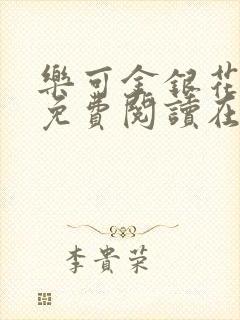 樂可金銀花
免費閱讀在
李貴荣